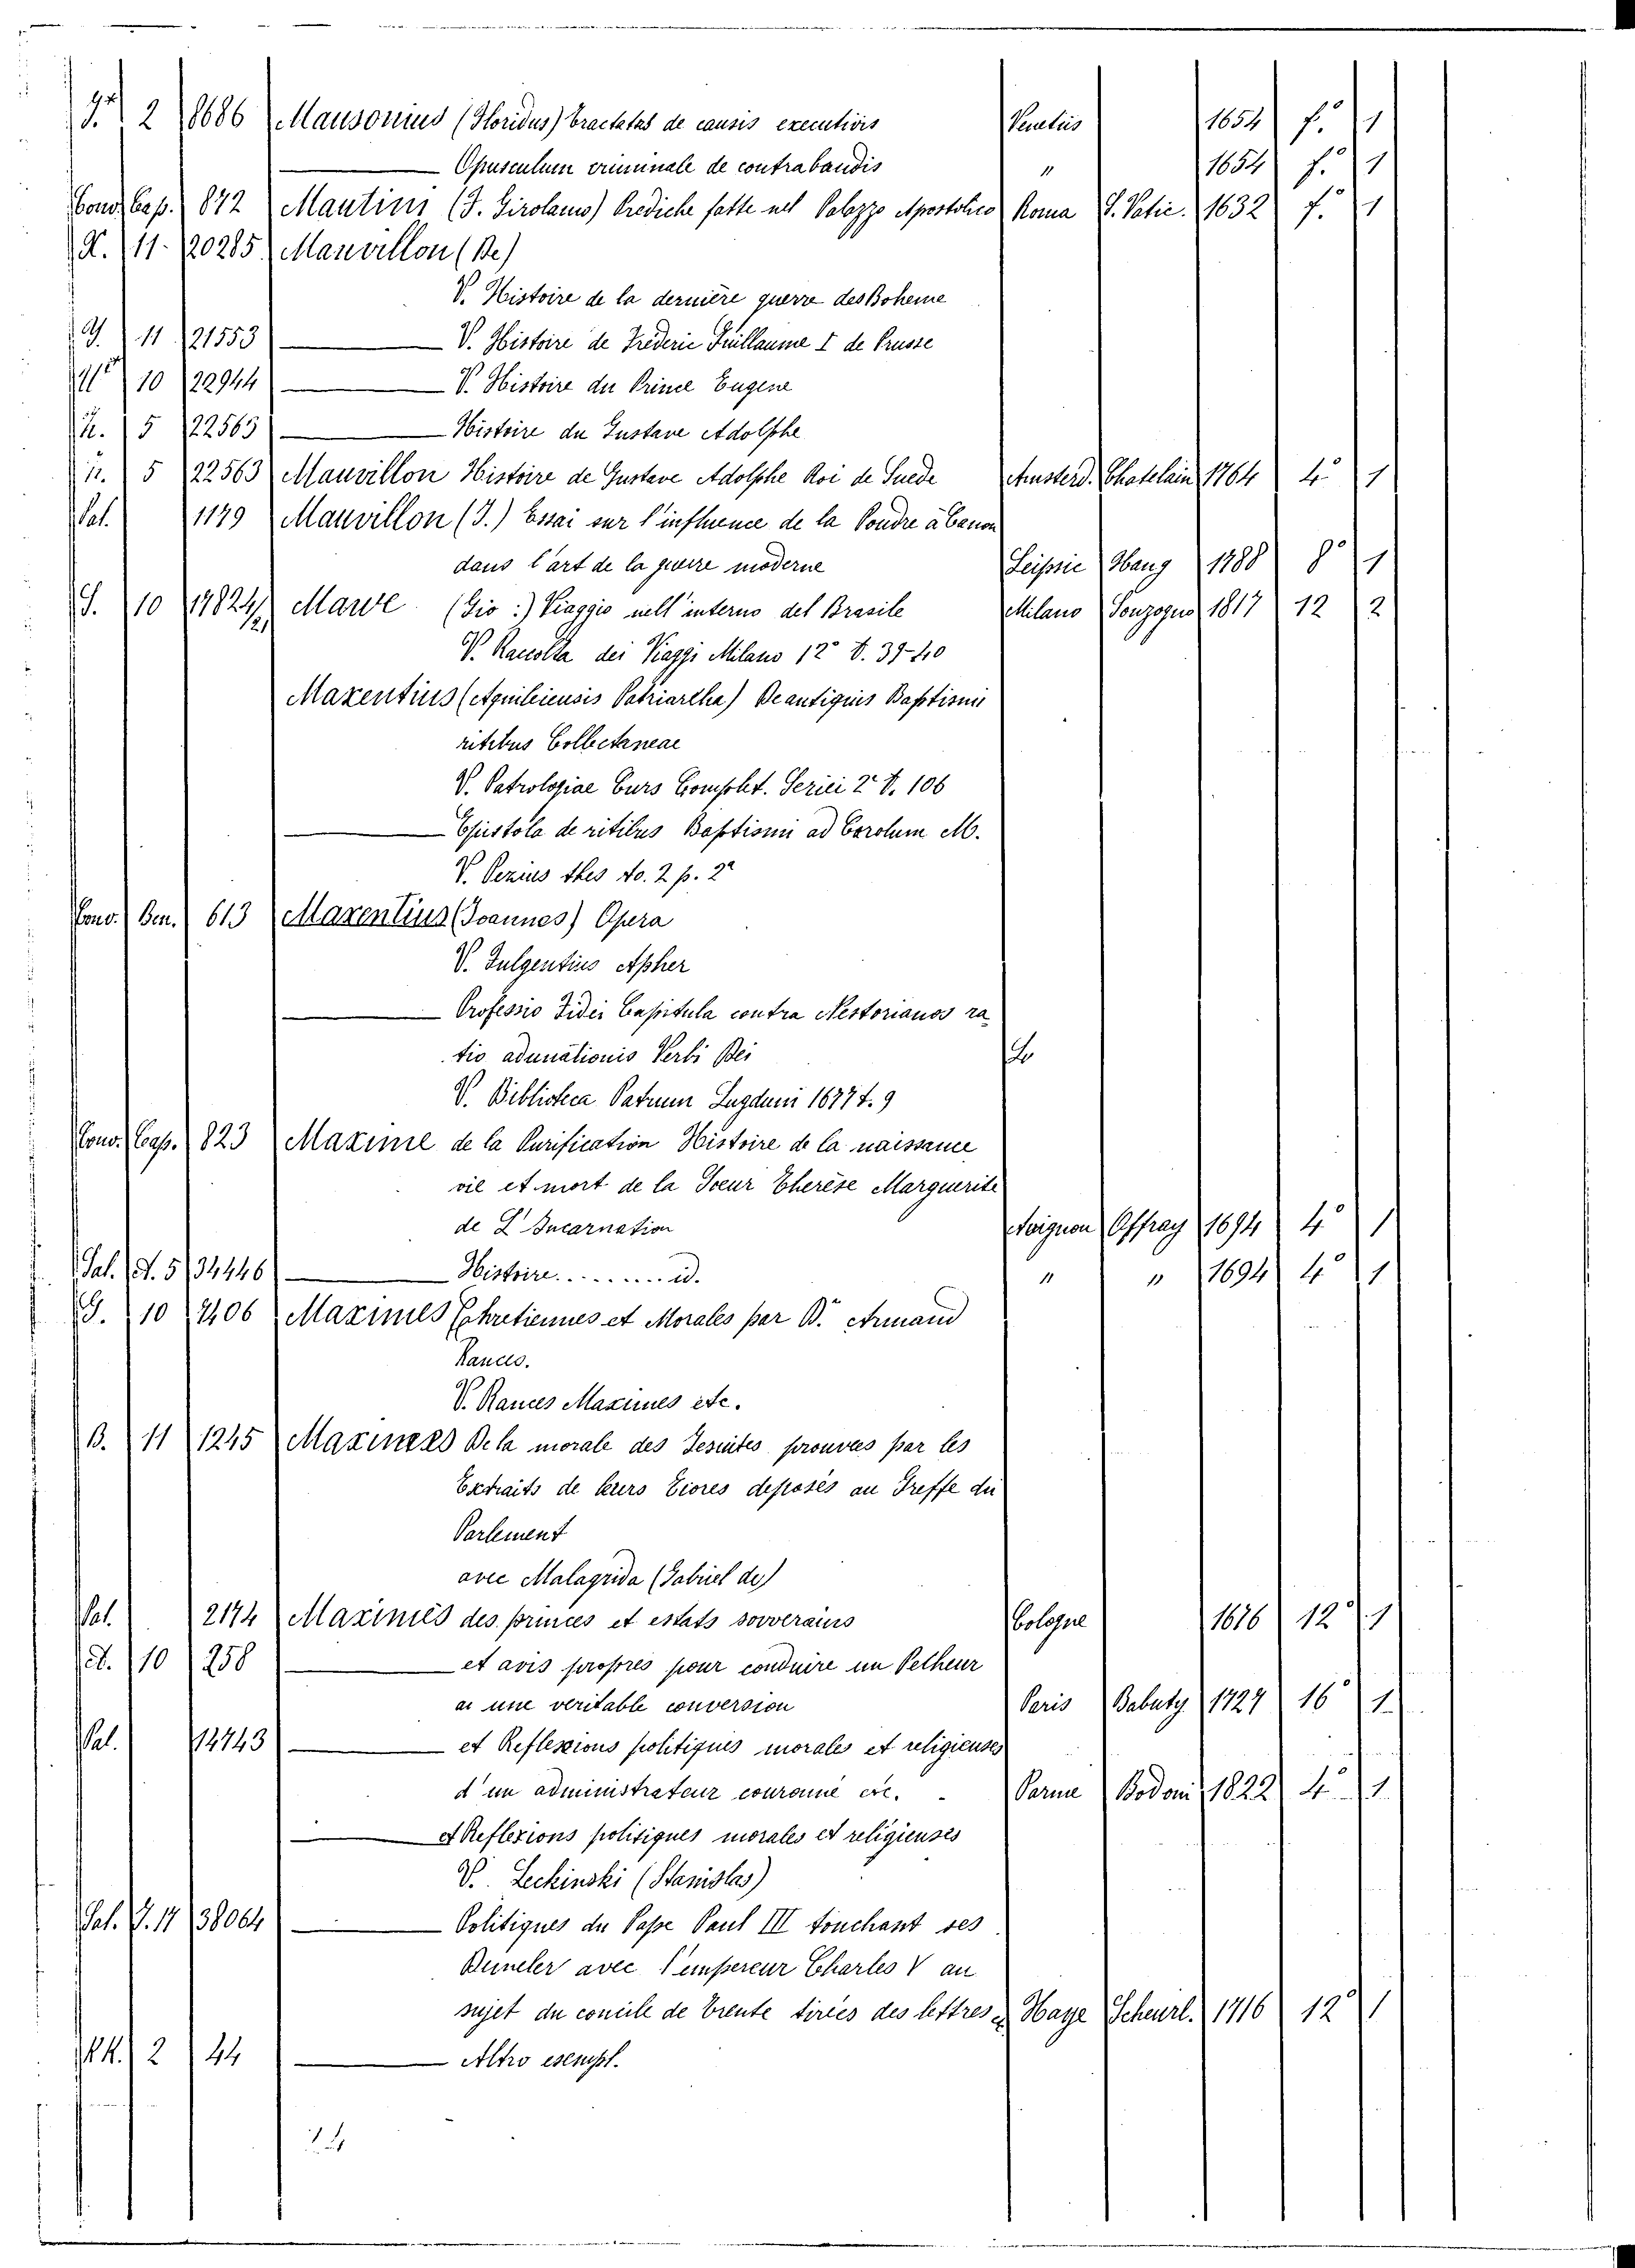 2 8686 Mansonius (Floridus) tractatus de causis executivis Venetiis 1654 f.° 1
Opusculum criminale de contrabandis " 1654 f.° 1
Conv. Cap. 872 Mautini (F. Girolamo) Prediche fatte nel Palazzo Apostolico Roma S. Vatic. 1632 f.° 1
X. 11 20285 Manvillon (De)
V. Histoire de la dernière guerre des Boheme
11 21553 V. Histoire de Frederic Guillaume I de Prusse
10 22944 V. Histoire du Prince Eugene
5 22563 Histoire du Gustave Adolphe
5 22563 Mauvillon Histoire de Gustave Adolphe Roi de Suede Amsterd. Chatelain 1764 4° 1
Pal. 1179 Mauvillon (J.) Essai sur l'influence de la Poudre à Canon
dans l'art de la guerre moderne Leipsic Haug 1788 8° 1
S. 10 17824/2 Mawe (Gio:) Viaggio nell'interno del Brasile Milano Sonzogno 1817 12 2
V. Raccolta dei Viaggi Milano 12° t. 39-40
Maxentius (Aquileiensis Patriarcha) De antiquis Baptismi
ritibus Collectaneae
V. Patrologiae Curs Complet. Seriei 2ª t. 106
Epistola de ritibus Baptismi ad Carolum M.
V. Pezius thes to. 2 p. 2ª
Conv. Ben. 613 Maxentius (Joannes) Opera
V. Fulgentius Apher
Professio Fidei Capitula contra Nestorianos ra
tio adunationis Verbi Dei
V. Biblioteca Patrum Lugduni 1677 t. 9
Conv. Cap. 823 Maxime de la Purification Histoire de la naissance
vie et mort de la Soeur Therèse Marguerite
de L'Incarnation Avignon Offray 1694 4° 1
Sal. A. 5 34446 Histoire......... id. " " 1694 4° 1
G. 10 7406 Maximes Chretiennes et Morales par D. Armand
Rances.
V. Rances Maximes etc.
B. 11 1245 Maximes De la morale des Jesuites prouvees par les
Extraits de leurs Livres deposés au Greffe du
Parlement
avec Malagrida (Gabriel de)
Pal. 2174 Maximes des princes et estats sovverains Cologne 1676 12° 1
A. 10 258 et avis propres pour conduire un Pecheur
a une veritable conversion Paris Babuty 1727 16° 1
Pal. 14743 et Reflexions politiques morales et religieuses
d'un administrateur couronné etc. Parme Bodoni 1822 4° 1
et Reflexions politiques morales et religieuses
V. Leckinski (Stanislas)
Sal. P. 17 38064 Politiques du Pape Paul III touchant ses
avec l'empereur Charles V au
sujet du concile de Trente tirées des lettres Haye Scheurl. 1716 12° 1
2 44 Altro esempl.